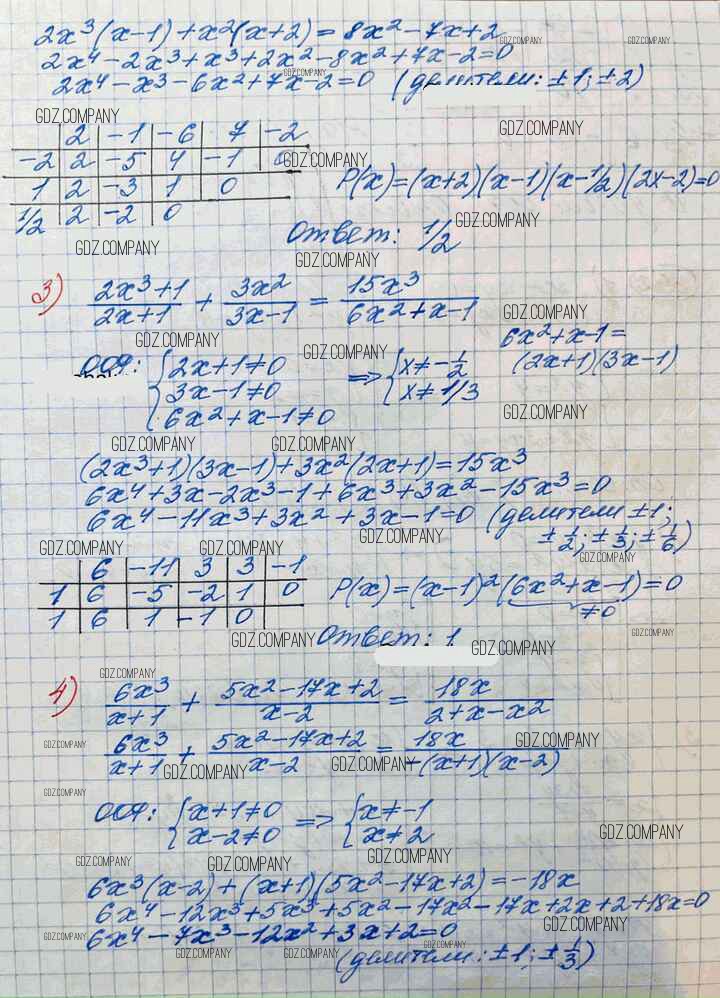 2x³(x-1)+x²(x+2)=8x²-7x+2
2x⁴-2x³+x³+2x²-8x²+7x-2=0
2x⁴-x³-6x²+7x-2=0 (делители: ±1; ±2)
2 -1 -6 7 -2
-2 2 -5 4 -1 0
1 2 -3 1 0
1/2 2 -2 0
P(x)=(x+2)(x-1)(x-1/2)(2x-2)=0
Ответ: 1/2
3) (2x³+1)/(2x+1) + 3x²/(3x-1) = 15x³/(6x²+x-1)
ООУ: {2x+1≠0 => {x≠-1/2
3x-1≠0 x≠1/3
6x²+x-1≠0
6x²+x-1=
(2x+1)(3x-1)
(2x³+1)(3x-1)+3x²(2x+1)=15x³
6x⁴+3x-2x³-1+6x³+3x²-15x³=0
6x⁴-11x³+3x²+3x-1=0 (делители ±1;
±1/2; ±1/3; ±1/6)
6 -11 3 3 -1
1 6 -5 -2 1 0
1 6 1 -1 0
P(x)=(x-1)²(6x²+x-1)=0
≠0
Ответ: 1
4) 6x³/(x+1) + (5x²-17x+2)/(x-2) = 18x/(2+x-x²)
6x³/(x+1) + (5x²-17x+2)/(x-2) = 18x/(-(x+1)(x-2))
ООУ: {x+1≠0 => {x≠-1
x-2≠0 x≠2
6x³(x-2)+(x+1)(5x²-17x+2)=-18x
6x⁴-12x³+5x³+5x²-17x²-17x+2x+2+18x=0
6x⁴-7x³-12x²+3x+2=0
(делители: ±1; ±1/3)
GDZ.COMPANY